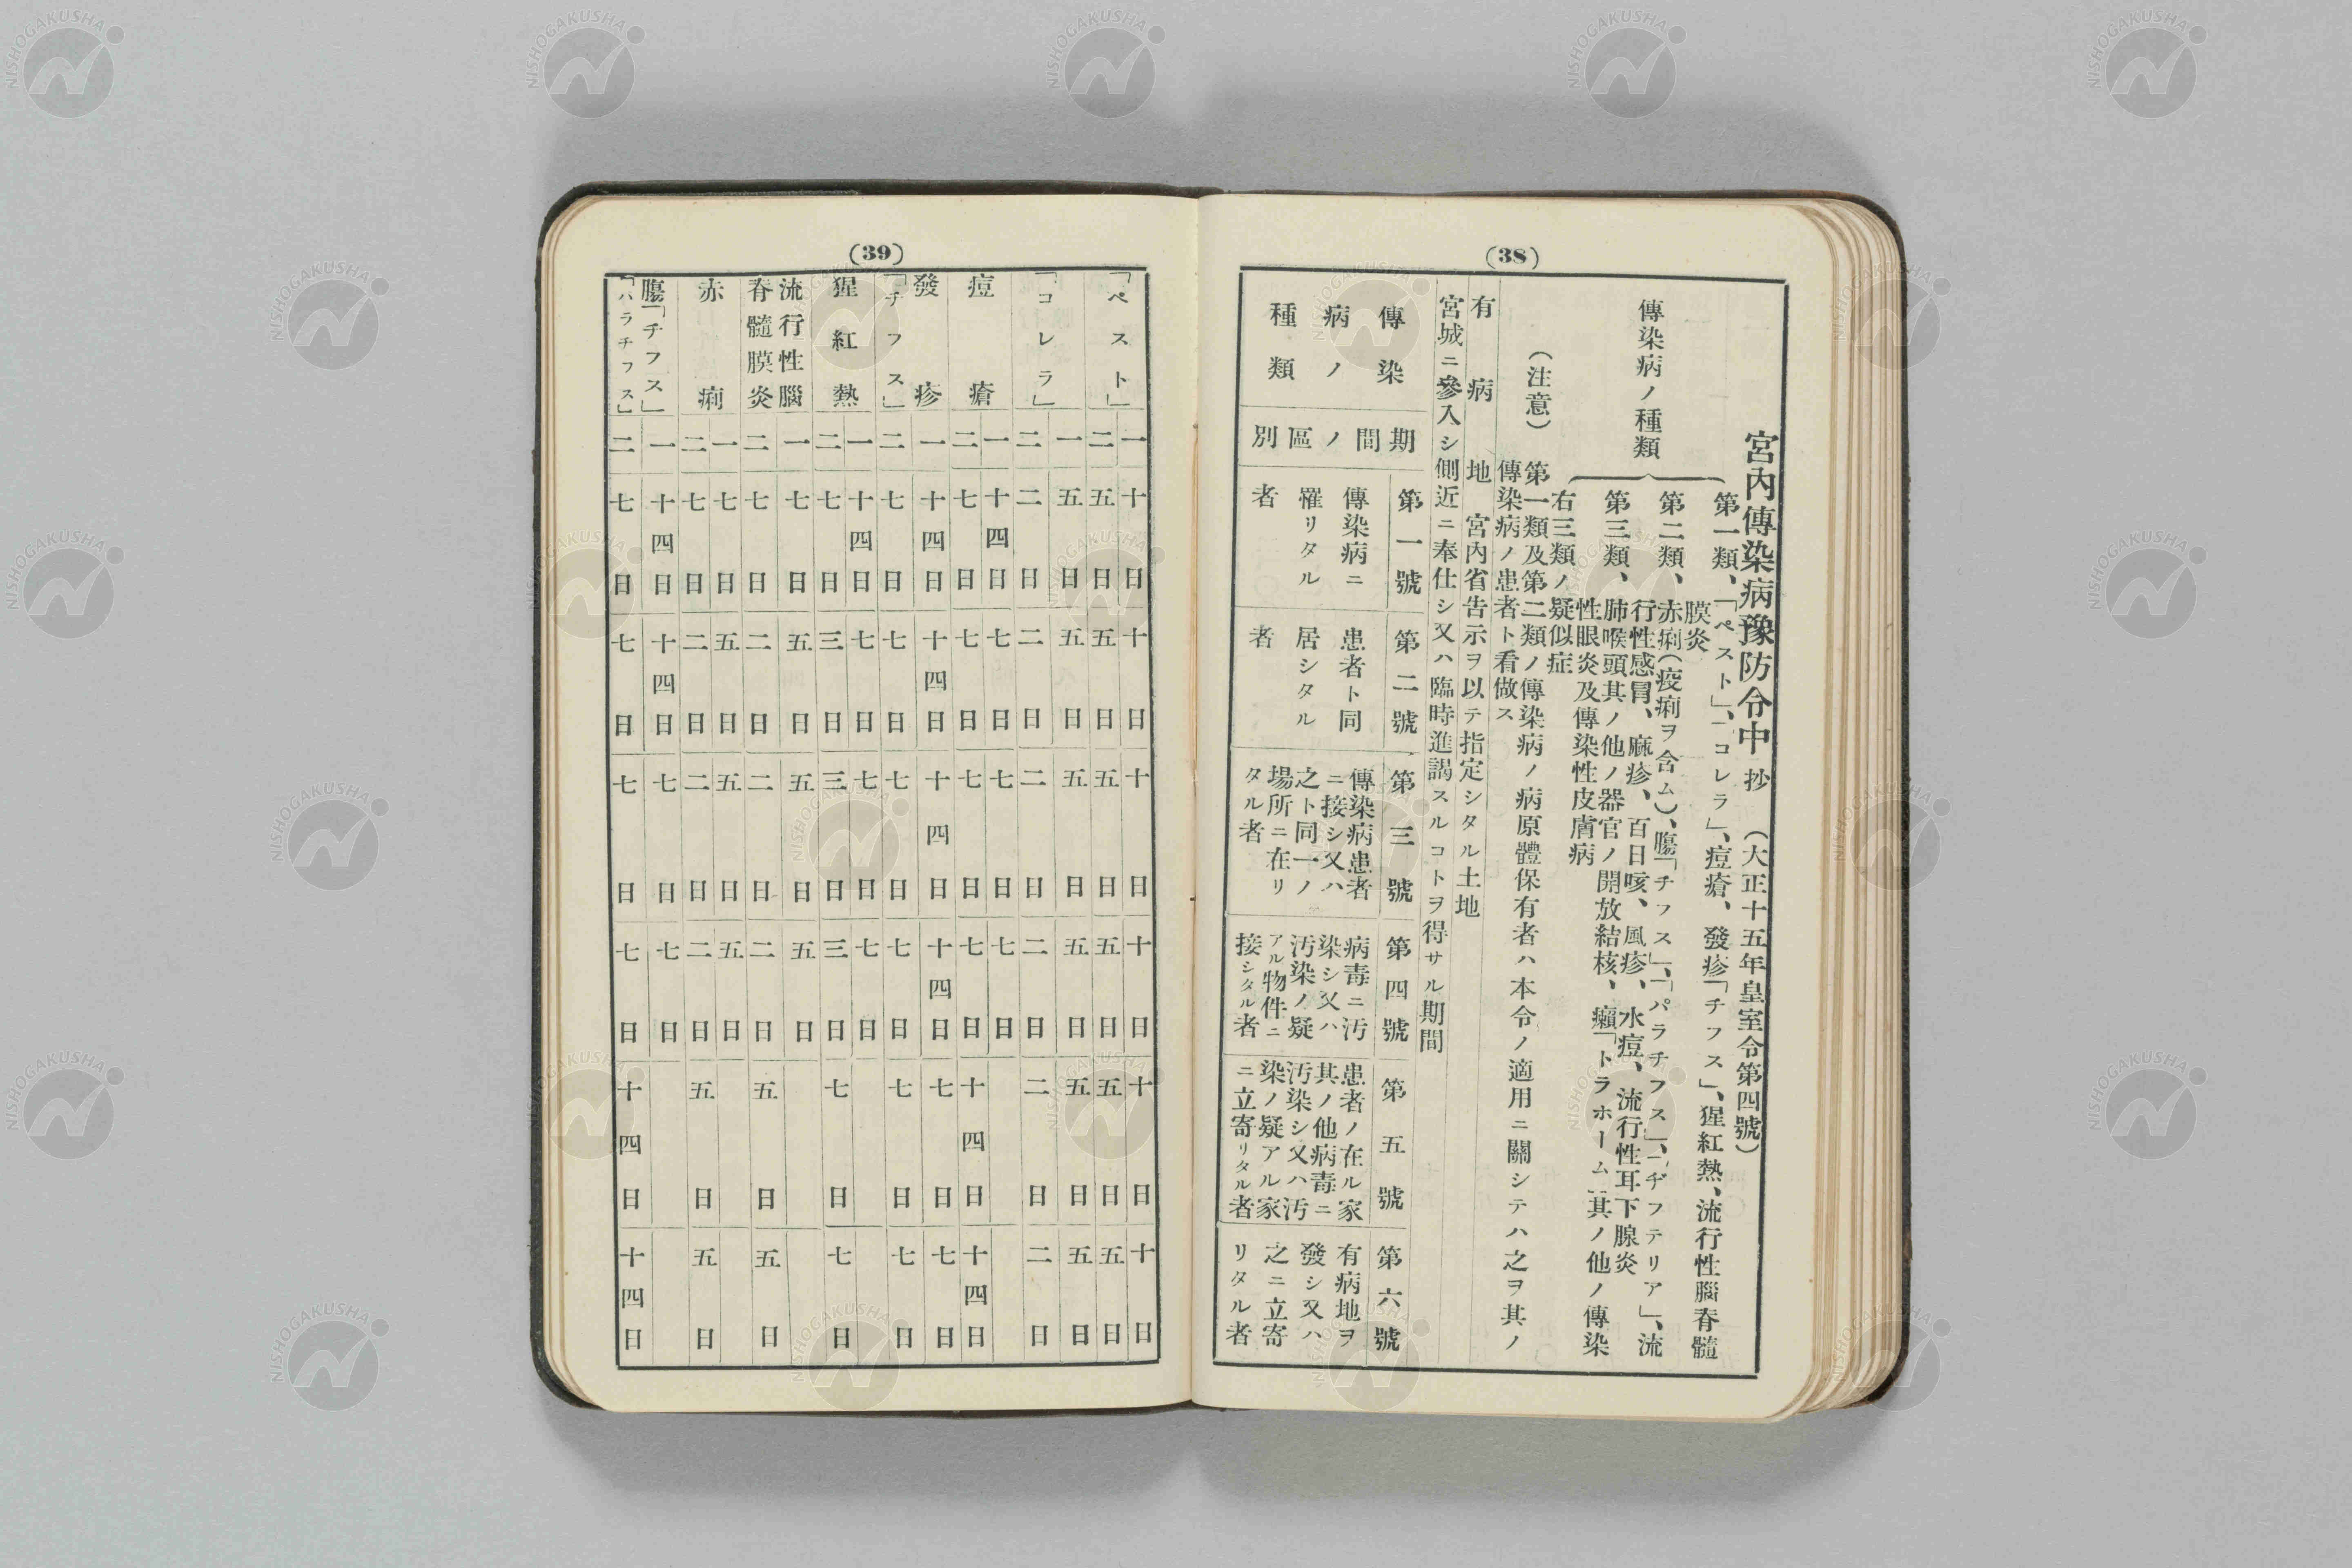 (38)
宮內傳染病豫防令中抄 (大正十五年皇室令第四號)
傳染病ノ種類
第一類、「ペスト」、「コレラ」、痘瘡、發疹「チフス」、猩紅熱、流行性腦脊髓
膜炎
第二類、赤痢(疫痢ヲ含ム)、膓「チフス」、「パラチフス」、「ヂフテリア」、流
行性感冒、麻疹、百日咳、風疹、水痘、流行性耳下腺炎
第三類、肺喉頭其ノ他ノ器官ノ開放結核、癩「トラホーム」其ノ他ノ傳染
性眼炎及傳染性皮膚病
右三類ノ疑似症
(注意) 第一類及第二類ノ傳染病ノ病原體保有者ハ本令ノ適用ニ關シテハ之ヲ其ノ
傳染病ノ患者ト看做ス
有病地 宮內省告示ヲ以テ指定シタル土地
宮城ニ參入シ側近ニ奉仕シ又ハ臨時進謁スルコトヲ得サル期間
傳染
病ノ
種類
期間ノ區別
第一號
傳染病ニ
罹リタル
者
第二號
患者ト同
居シタル
者
第三號
傳染病患者
ニ接シ又ハ
之ト同一ノ
場所ニ在リ
タル者
第四號
病毒ニ汚
染シ又ハ
汚染ノ疑
アル物件ニ
接シタル者
第五號
患者ノ在ル家
其ノ他病毒ニ
汚染シ又ハ汚
染ノ疑アル家
ニ立寄リタル者
第六號
有病地ヲ
發シ又ハ
之ニ立寄
リタル者
(39)
「ペスト」
一 十日 十日 十日 十日 十日 十日
二 五日 五日 五日 五日 五日 五日
「コレラ」
一 五日 五日 五日 五日 五日 五日
二 二日 二日 二日 二日 二日 二日
痘瘡
一 十四日 七日 七日 七日
二 七日 七日 七日 七日 十四日 十四日
發疹
「チフス」
一 十四日 十四日 十四日 十四日 七日 七日
二 七日 七日 七日 七日 七日 七日
猩紅熱
一 十四日 七日 七日 七日
二 七日 三日 三日 三日 七日 七日
流行性腦
脊髓膜炎
一 七日 五日 五日 五日
二 七日 二日 二日 二日 五日 五日
赤痢
一 七日 五日 五日 五日
二 七日 二日 二日 二日 五日 五日
膓「チフス」
「パラチフス」
一 十四日 十四日 七日 七日
二 七日 七日 七日 七日 十四日 十四日
NISHOGAKUSHA